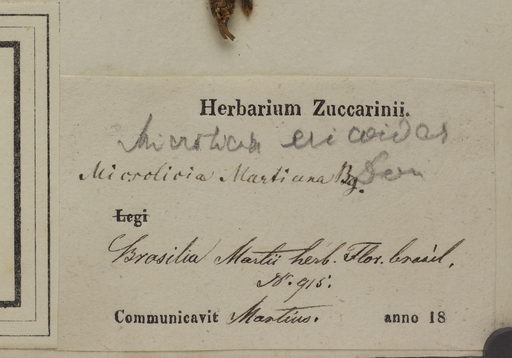 Herbarium Zuccarinii.
Microlicia ericoides Don
Microlicia Martiana Bg.
Legi
Brasilia Martii herb. Flor. brasil.
N. 915.
Communicavit Martius. anno 18